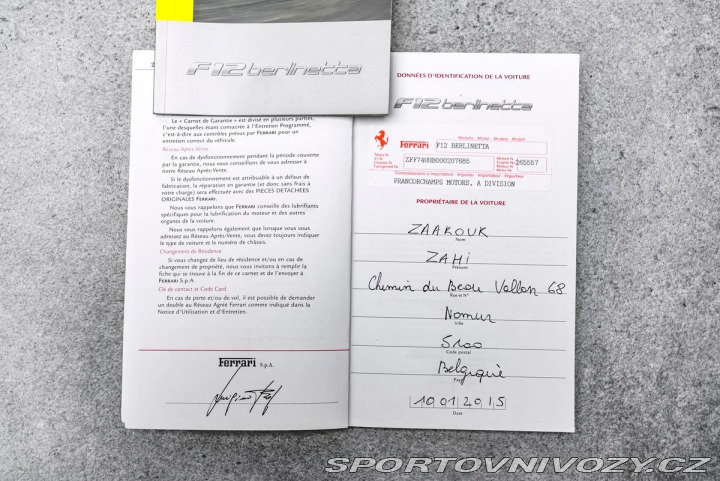 F12 berlinetta
Le « Carnet de Garantie » est divisé en plusieurs parties,
l'une desquelles étant consacrée à l'Entretien Programmé,
c'est-à-dire aux contrôles prévus par FERRARI pour un
entretien correct du véhicule.
Réseau Après-Vente
En cas de dysfonctionnement pendant la période couverte
par la garantie, nous vous conseillons de vous adresser à
notre Réseau Après-Vente.
Si le dysfonctionnement est attribuable à un défaut de
fabrication, la réparation en garantie (et donc sans frais à
votre charge) sera effectuée avec des PIECES DETACHEES
ORIGINALES FERRARI.
Nous vous rappelons que FERRARI conseille des lubrifiants
spécifiques pour la lubrification du moteur et des autres
organes de la voiture.
Nous vous rappelons également que lorsque vous vous
adressez au Réseau Après-Vente, vous devez toujours indiquer
le type de voiture et le numéro de châssis.
Changement de Résidence
Si vous changez de lieu de résidence et/ou en cas de
changement de propriété, nous vous invitons à remplir la
fiche qui se trouve à la fin de ce carnet et de l'envoyer à
FERRARI S.p.A.
Clé de contact et Code Card
En cas de perte et/ou de vol, il est possible de demander
un double au Réseau Agréé Ferrari comme indiqué dans la
Notice d'Utilisation et d'Entretien.
Ferrari S.p.A.
DONNÉES D'IDENTIFICATION DE LA VOITURE
F12 berlinetta
Ferrari F12 BERLINETTA
265557
FRANCORCHAMPS MOTORS, A DIVISION
PROPRIÉTAIRE DE LA VOITURE
ZAAROUK
Nom
ZAHI
Prénom
Chemin du Beau Vallon 68
Rue et N°
Namur
Ville
5100
Code postal
Belgique
Pays
10 01 2015
Date
SPORTOVNIVOZY.CZ